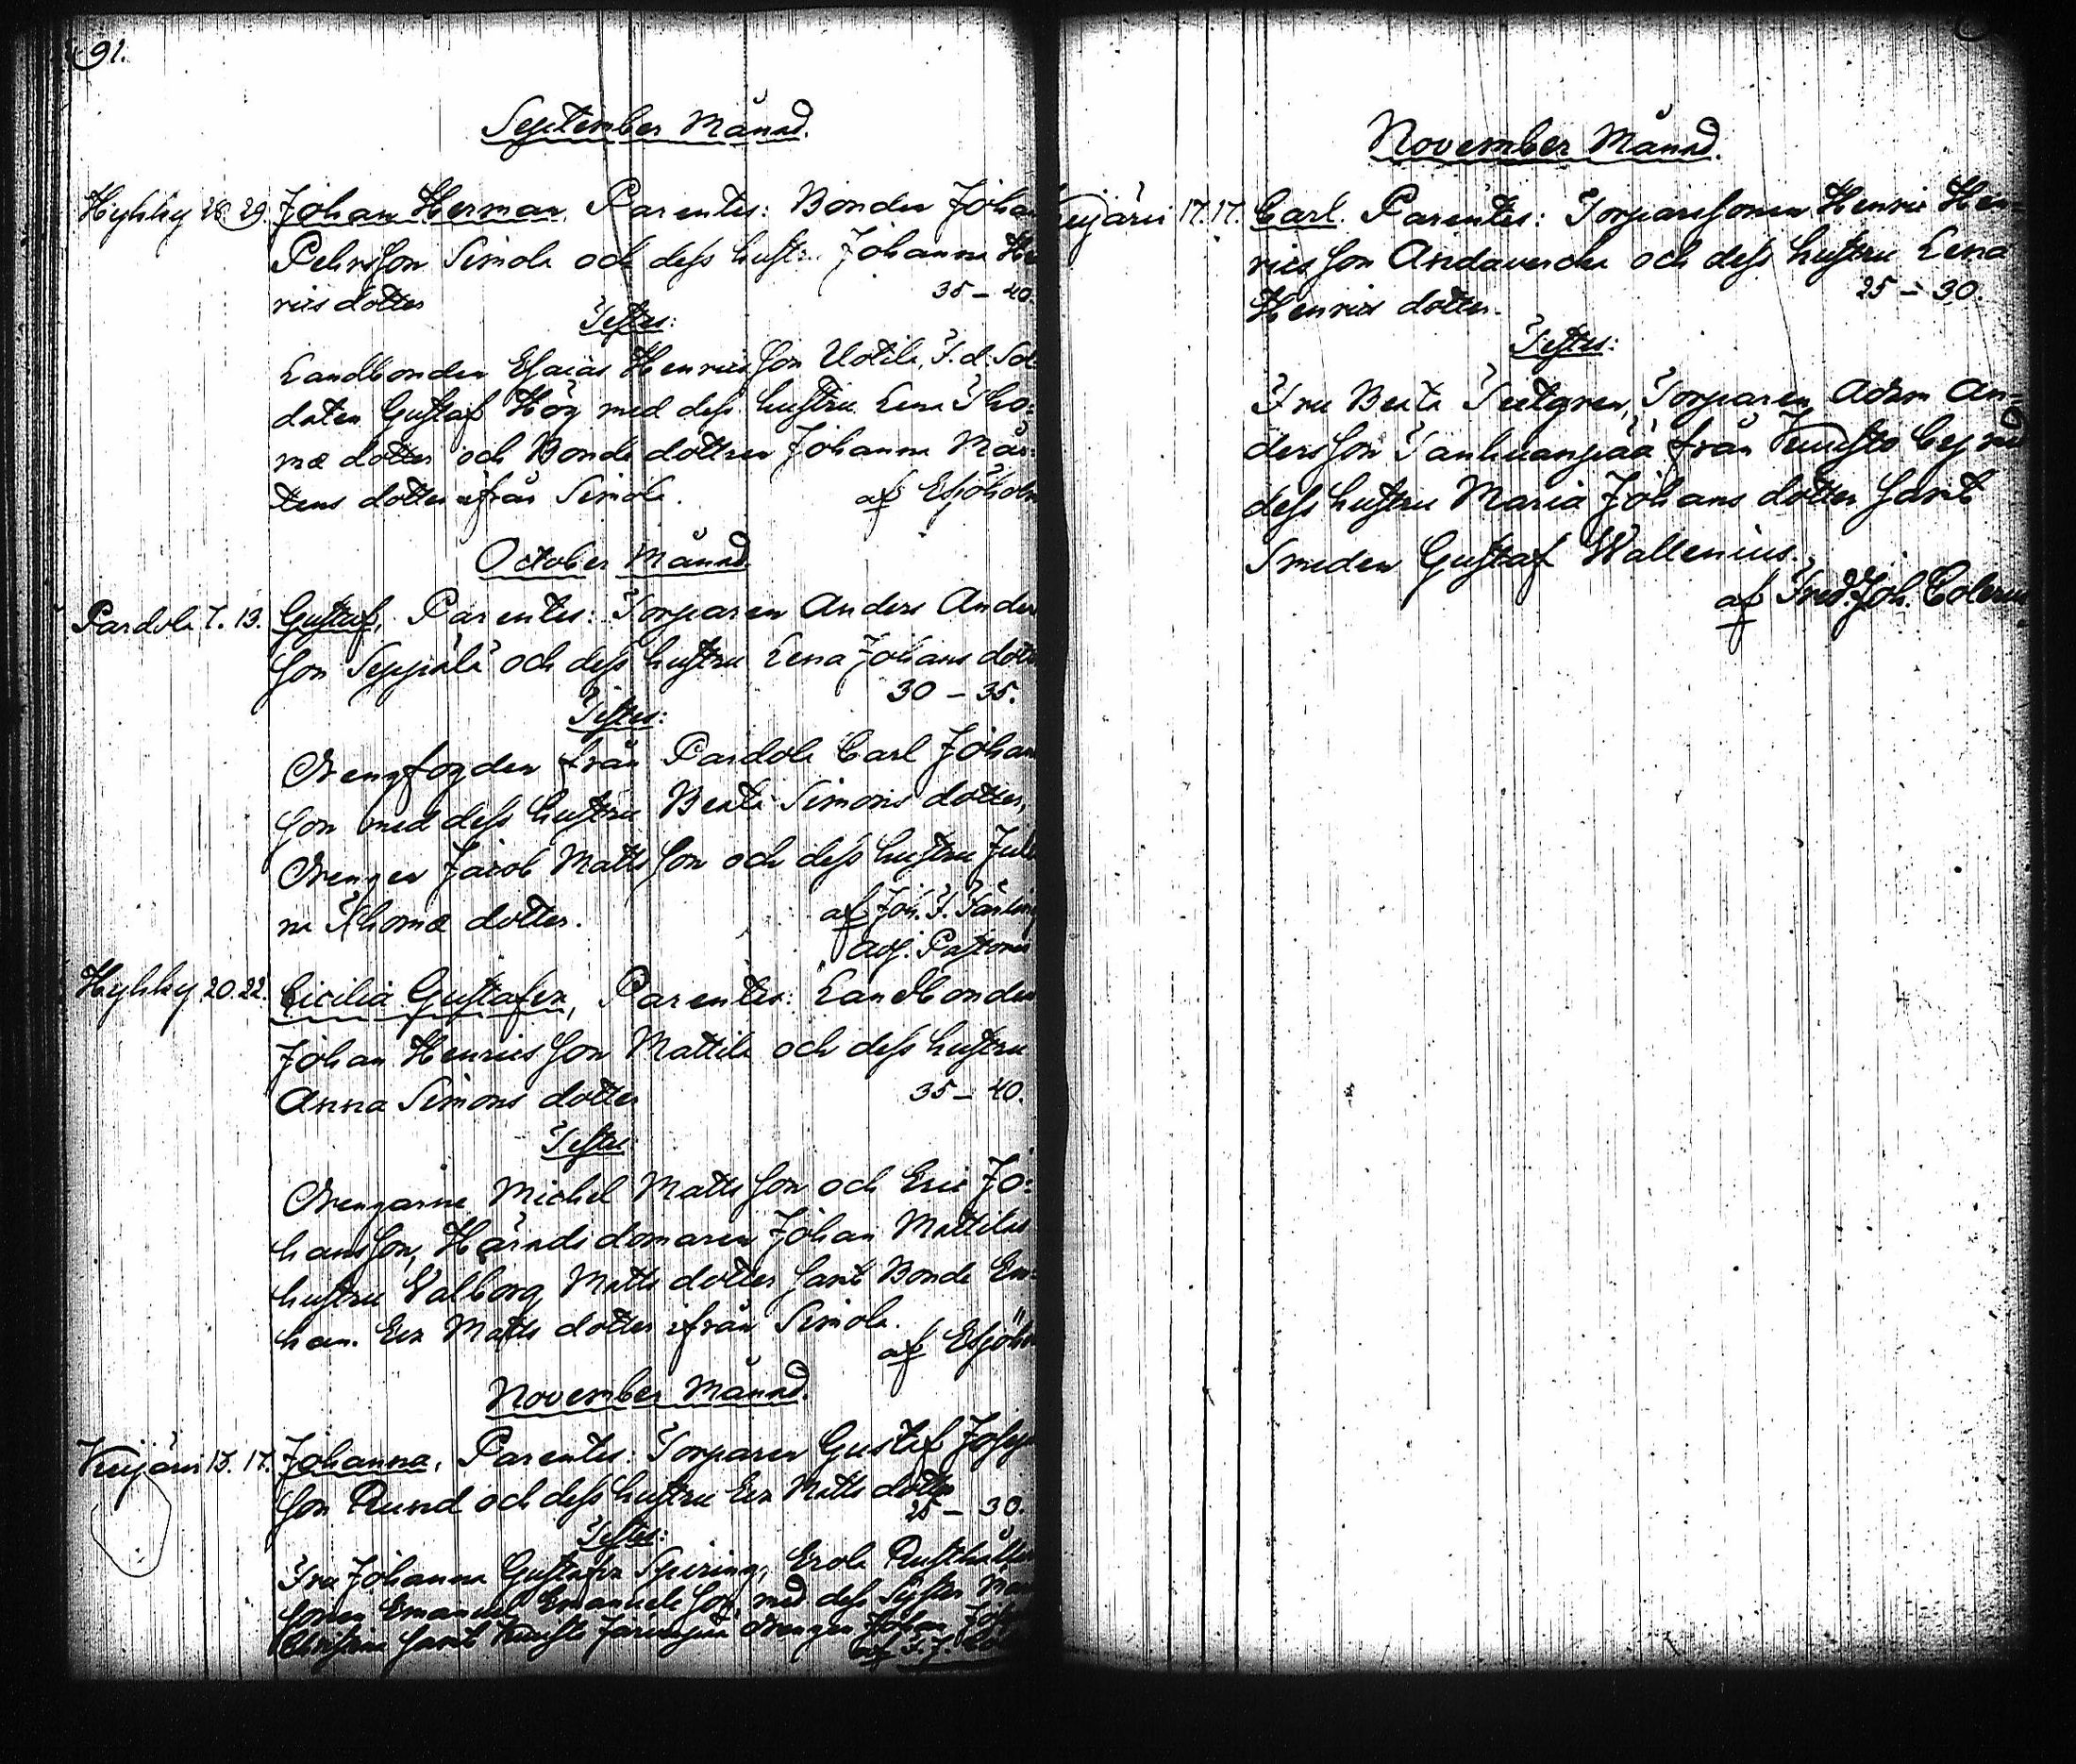 91.
September Månad.
Hyhky 28. 29. Johan Herman. Parentes: Bonden Johan
Pehrsson Simola och dess hustru Johanna He
rics dotter 35 – 40.
Testes:
Landbonden Esaias Henricsson Uotila, F. d. Sol
daten Gustaf Hög med dess hustru Lena Tho:
mæ dotter och Bonde dottren Johanna Mår:
tens dotter ifrån Simola. af Ehjöholm
October Månad.
Pardola 7. 13. Gustaf, Parentes: Torparen Anders Anders
son Seppälä och dess hustru Lena Johans dott
30 – 35.
Testes:
Drengfogden från Pardola Carl Johan
son med dess hustru Beata Simons dotter,
Drengen Jacob Mattsson och dess hustru Julia
na Thomæ dotter. af Joh. F.
adj. Pastoris
Hyhky 20. 22. Cicilia Gustafva, Parentes: Landbonden
Johan Henricsson Mattila och dess hustru
Anna Simons dotter 35 – 40.
Testes:
Drengarne Michel Mattsson och Eric Jo:
hansson, Häradsdomaren Johan Mattilas
hustru Valborg Matts dotter samt Bonde En:
kan Eva Matts dotter ifrån Simola.
af
November Månad.
Kuijärvi 15. 17. Johanna, Parentes: Torparen Gustaf Joseps
son Rund och dess hustru Eva Matts dotter
25 – 30.
Testes:
Fru Johanna Gustafva Spiring, Erola Rusthålls
sonen Emanuel Emanuelsson med dess Syster
Christina samt Drengen Johan
af F. J.
November Månad.
Kuijärvi 17. 17. Carl. Parentes: Torparesonen Henric Hen=
ricsson Andavercka och dess hustru Lena
Henrics dotter. 25 – 30.
Testes:
Fru Beata Teetgren, Torparen Adam An=
dersson Tanhuanpää från Kuusto By med
dess hustru Maria Johans dotter samt
Smeden Gustaf Wallenius.
af Fred. Joh. Colerus